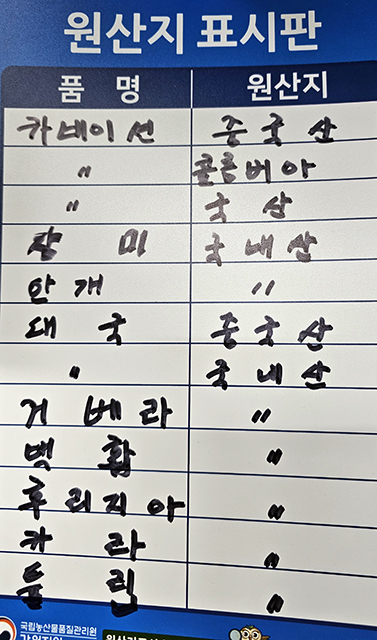 원산지 표시판
품 명 원산지
카네이션 중국산
〃 콜롬비아
〃 국 산
장 미 국내산
안개 〃
대 국 중국산
〃 국내산
거 베 라 〃
백 합 〃
후리지아 〃
카 라 〃
튤 립 〃
국립농산물품질관리원